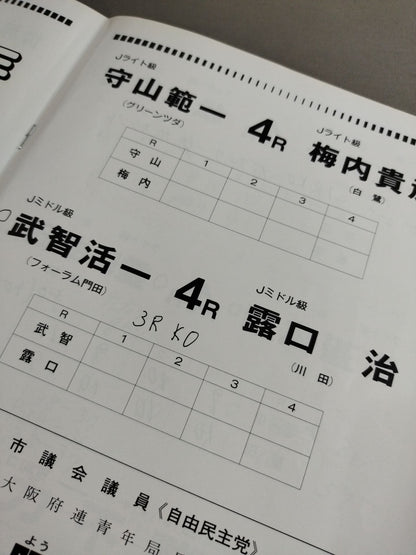 Jライト級
守山範一 4R
(グリーンツダ)
Jライト級
梅内貴
(白鷺)
R 1 2 3 4
守山
梅内
Jミドル級
武智活一 4R
(フォーラム門田)
Jミドル級
露口 治
(川田)
3R KO
R 1 2 3 4
武智
露口
市議会議員《自由民主党》
大阪府連青年局
よう